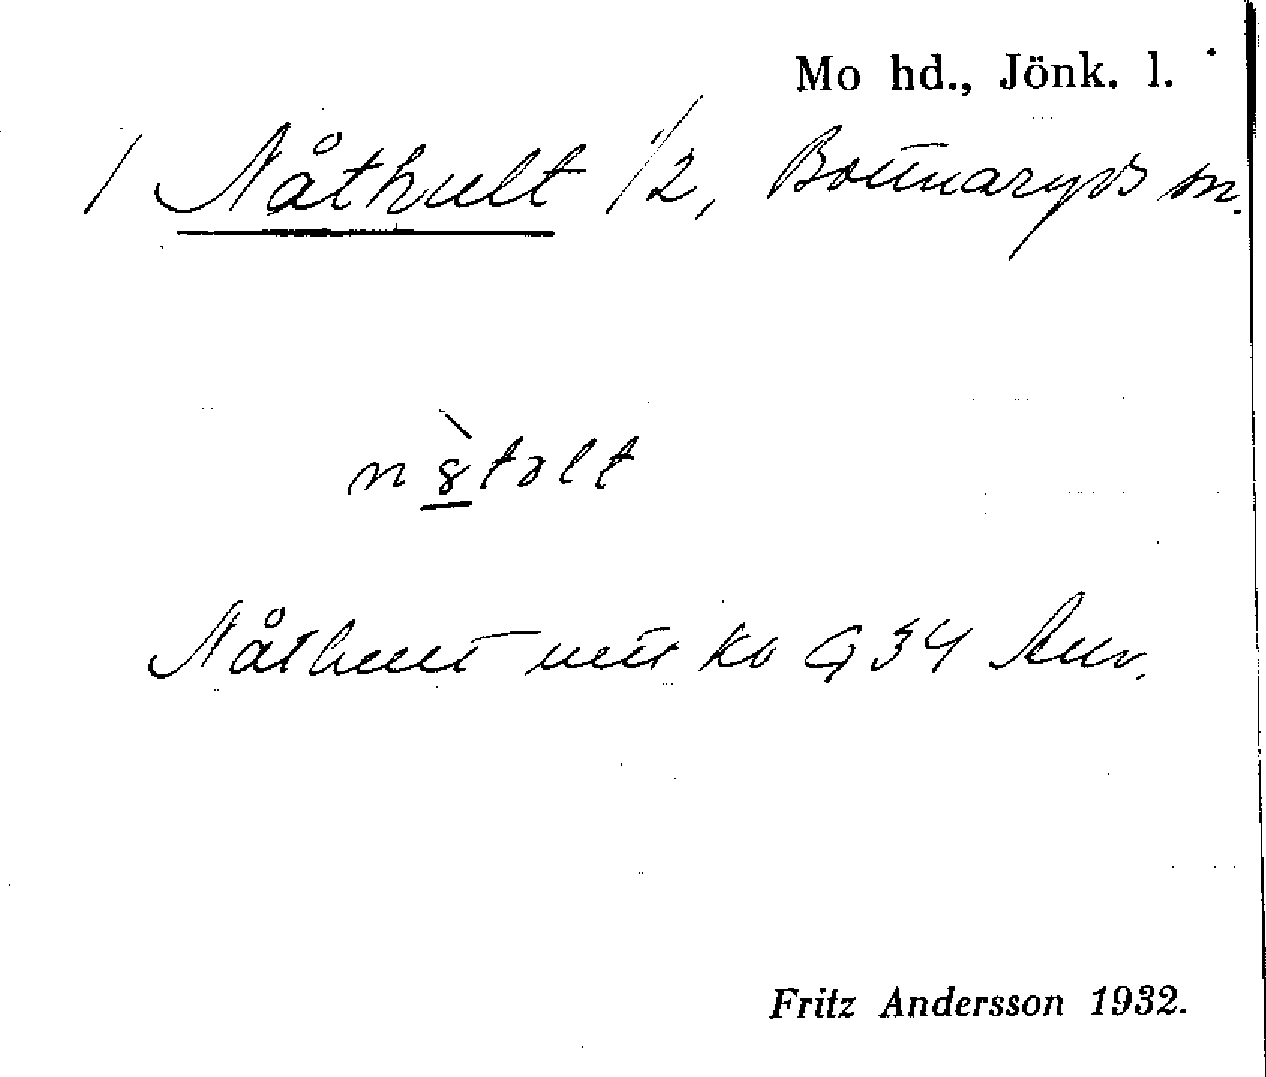 Mo hd., Jönk. l.
/ Nåthult 1/2, Bottnaryds sn.
Nåthult ko G 34
Fritz Andersson 1932.